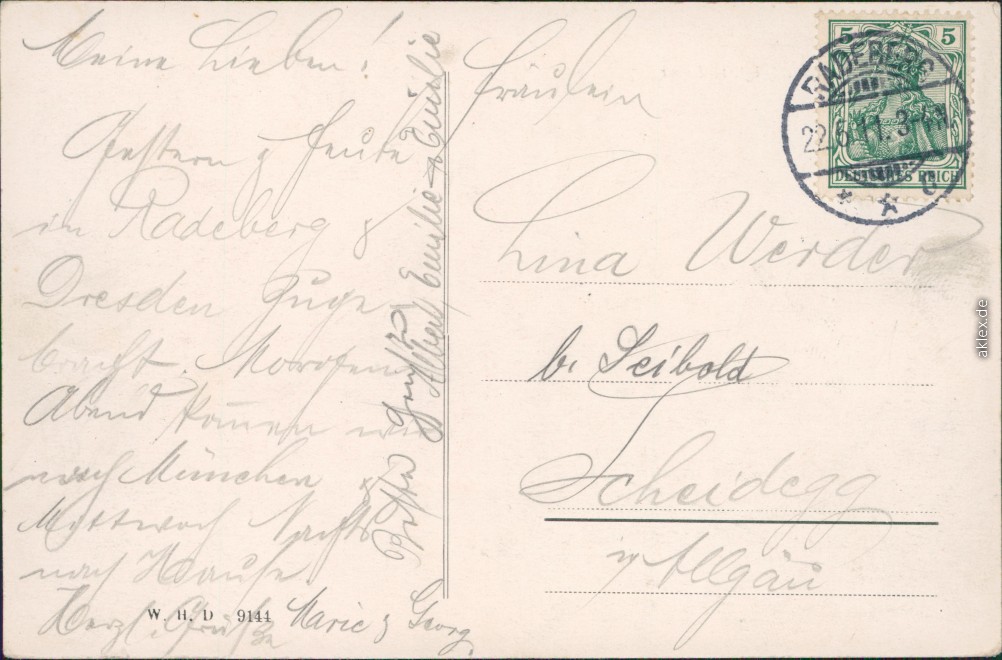 Meine Lieben!
Gestern & heute
in Radeberg &
Dresden zuge
bracht. Morgen
Abend kommen wir
nach München &
Mittwoch Nachts
nach Hause.
Herzl. Grüße
Marie & Georg
Albert Emilie & Emilie
W. H. D 9144
Fräulein
Lina Werder
b. Seibold
Scheidegg
Allgäu
5 5
DEUTSCHES REICH
RADEBERG
22.6.11. 3-4
aklex.de